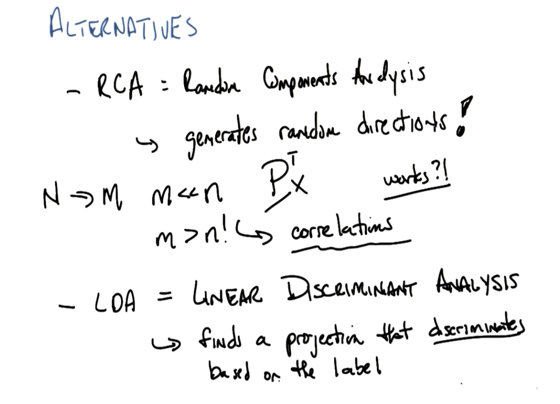 ALTERNATIVES
- RCA = Random Components Analysis
↳ generates random directions!
N → M m << n PᵀX works?!
m > n! ↳ correlations
- LDA = LINEAR DISCRIMINANT ANALYSIS
↳ finds a projection that discriminates
based on the label